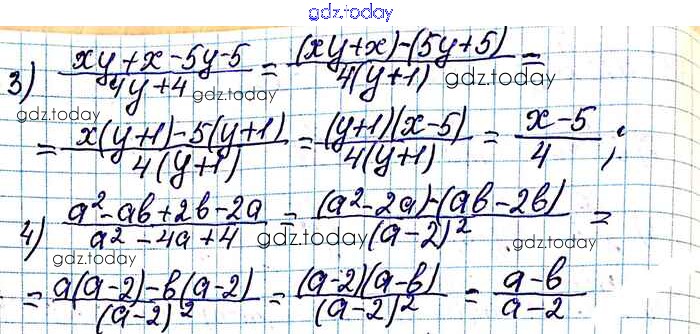 gdz.today
3) (xy+x-5y-5)/(4y+4) = ((xy+x)-(5y+5))/(4(y+1)) =
gdz.today gdz.today gdz.today
= (x(y+1)-5(y+1))/(4(y+1)) = ((y+1)(x-5))/(4(y+1)) = (x-5)/4 ;
4) (a²-ab+2b-2a)/(a²-4a+4) = ((a²-2a)-(ab-2b))/((a-2)²) =
gdz.today gdz.today gdz.today
= (a(a-2)-b(a-2))/((a-2)²) = ((a-2)(a-b))/((a-2)²) = (a-b)/(a-2)